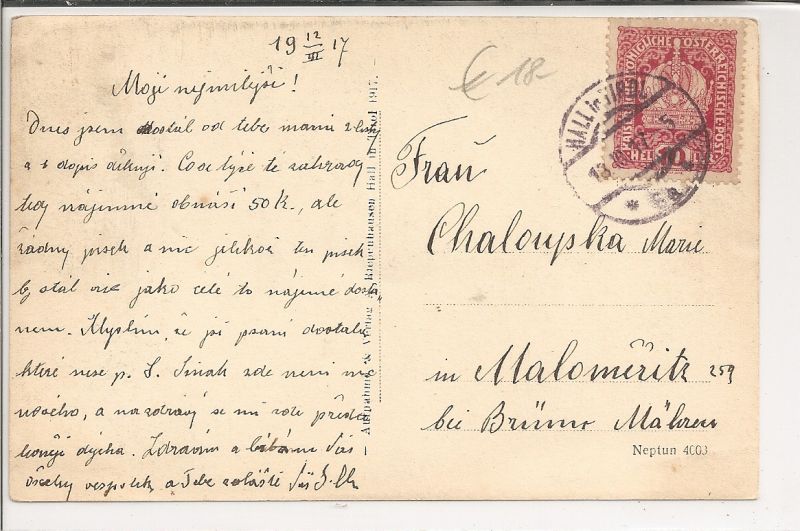 19 12/III 17
Moji nejmilejší!
Dnes jsem dostal od tebe mami 2 listy
a 1 dopis děkuji. Co se týče té zahrady
tedy nájemné obnáší 50 K., ale
žádný písek a nic jelikož ten písek
by stál víc jako celé to nájemné dosta-
nem. Myslím, že jsi psaní dostala
které nese p. S. Jinak zde není nic
nového, a na zdraví se mi zde přede
lehčeji dýchá. Zdravím a líbám Vás
všechny vespolek a Tebe zvláště Váš
Aufnahme & Verlag Riepenhausen Hall in Tirol 1917.
€ 18-
KAISERLICHE KÖNIGLICHE ÖSTERREICHISCHE POST
10 HELLER
HALL in TIROL
Frau
Chaloupska Marie
in Maloměřitz 259
bei Brünn Mähren
Neptun 4003